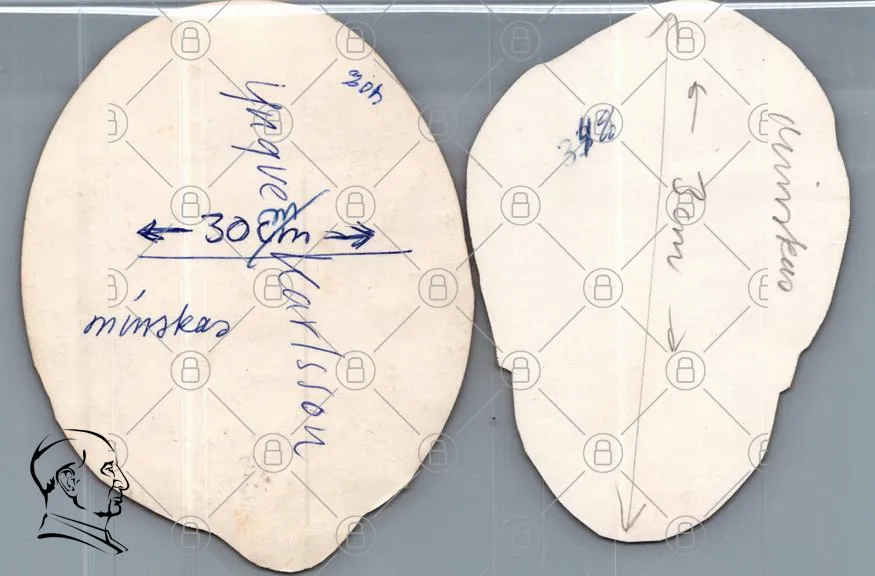 40%
Yngve Karlsson
← 30 cm →
minskas
34%
← 3cm →
Minskas